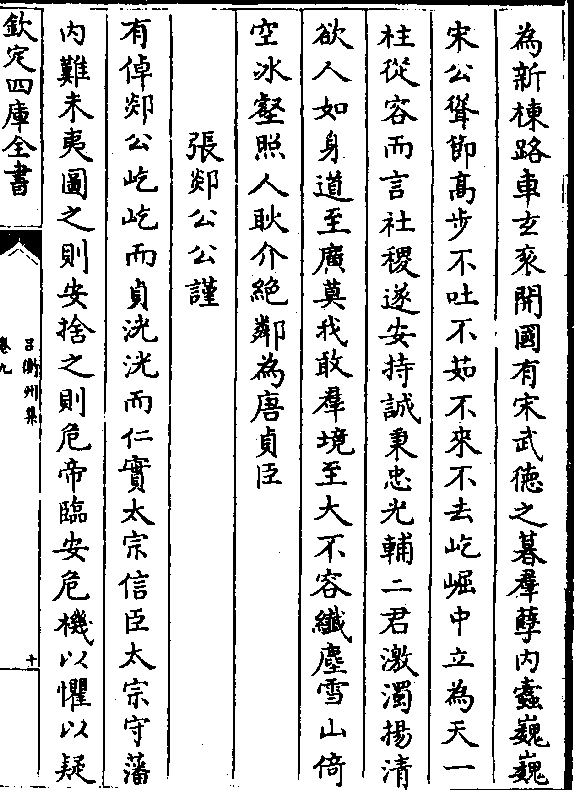 為新棟路車玄衮開國有宋武德之暮羣孽内蠹巍巍
宋公聳節高步不吐不茹不來不去屹崛中立為天一
柱從容而言社稷遂安持誠秉忠光輔二君激濁揚清
欲人如身道至廣莫我敢羣境至大不容纎塵雪山倚
空冰壑照人耿介絶鄰為唐貞臣
張郯公公謹
有倬郯公屹屹而貞洸洸而仁實太宗信臣太宗守藩
内難未夷圖之則安捨之則危帝臨安危機以懼以疑
欽定四庫全書
吕衡州集
卷九
十